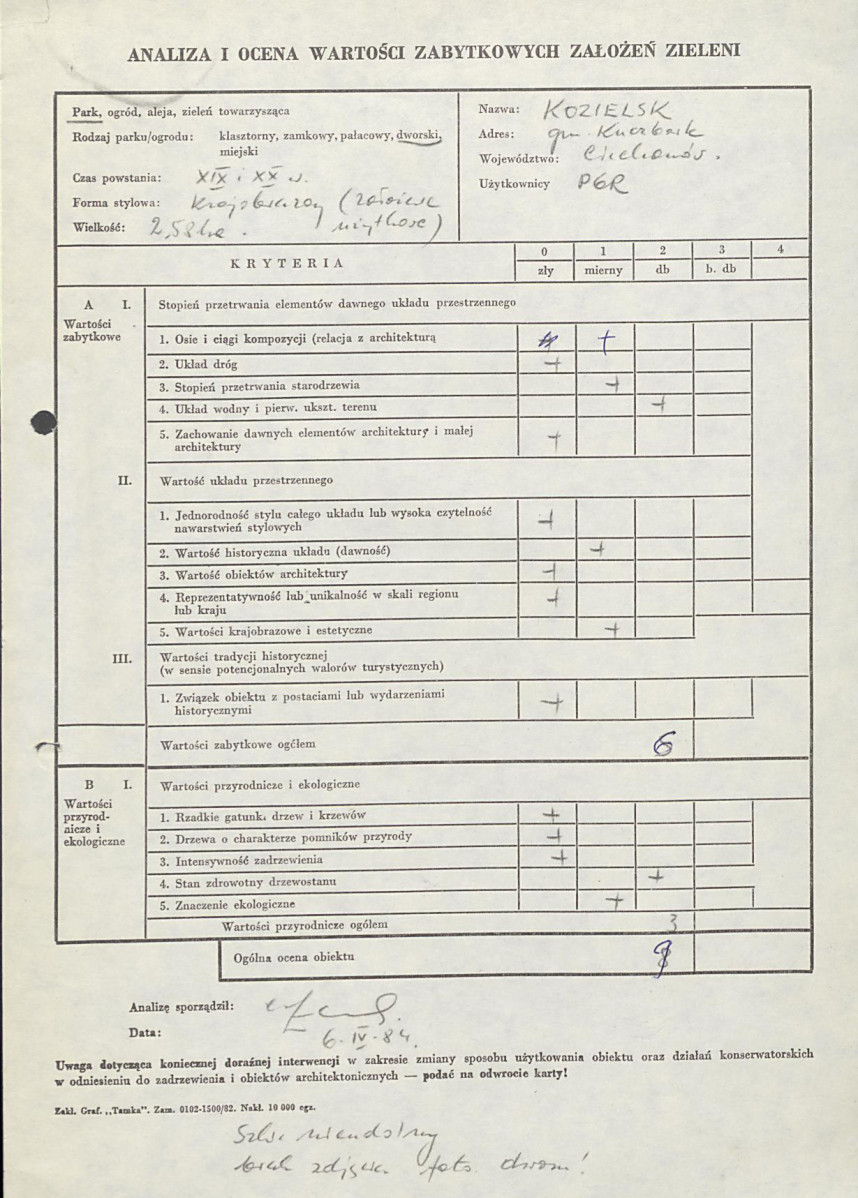 ANALIZA I OCENA WARTOŚCI ZABYTKOWYCH ZAŁOŻEŃ ZIELENI
Park, ogród, aleja, zieleń towarzysząca
Rodzaj parku/ogrodu: klasztorny, zamkowy, pałacowy, dworski,
miejski
Czas powstania: XIX i XX w.
Forma stylowa: Krajobrazowy (założenie
użytkowe)
Wielkość: 2,58 ha.
Nazwa: KOZIELSK
Adres: gm. Kuczbork
Województwo: Ciechanów.
Użytkownicy PGR
KRYTERIA
0 1 2 3 4
zły mierny db b. db
A I. Stopień przetrwania elementów dawnego układu przestrzennego
Wartości
zabytkowe
1. Osie i ciągi kompozycji (relacja z architekturą +
2. Układ dróg +
3. Stopień przetrwania starodrzewia +
4. Układ wodny i pierw. ukszt. terenu +
5. Zachowanie dawnych elementów architektury i małej
architektury +
II. Wartość układu przestrzennego
1. Jednorodność stylu całego układu lub wysoka czytelność
nawarstwień stylowych +
2. Wartość historyczna układu (dawność) +
3. Wartość obiektów architektury +
4. Reprezentatywność lub unikalność w skali regionu
lub kraju +
5. Wartości krajobrazowe i estetyczne +
III. Wartości tradycji historycznej
(w sensie potencjonalnych walorów turystycznych)
1. Związek obiektu z postaciami lub wydarzeniami
historycznymi +
Wartości zabytkowe ogółem 6
B I. Wartości przyrodnicze i ekologiczne
Wartości
przyrod-
nicze i
ekologiczne
1. Rzadkie gatunki drzew i krzewów +
2. Drzewa o charakterze pomników przyrody +
3. Intensywność zadrzewienia +
4. Stan zdrowotny drzewostanu +
5. Znaczenie ekologiczne +
Wartości przyrodnicze ogółem 3
Ogólna ocena obiektu
Analizę sporządził:
Data: 6.IV.84.
Uwaga dotycząca koniecznej doraźnej interwencji w zakresie zmiany sposobu użytkowania obiektu oraz działań konserwatorskich
w odniesieniu do zadrzewienia i obiektów architektonicznych — podać na odwrocie karty!
Zakł. Graf. „Tamka". Zam. 0102-1500/82. Nakł. 10 000 egz.
brak foto. dworu!